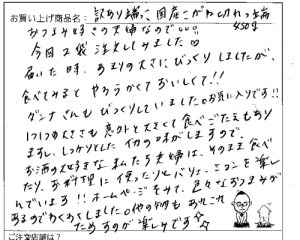 お買い上げ商品名: 訳あり端っこ国産こがね切れっ端
450g
おつまみ好きの夫婦なので
今回2袋注文しみました♡
届いた時、あまりの大きさにびっくりしましたが、
食べてみると やわらかくておいしくて!!
ダンナさんも びっくりしていました。お気に入りです!!
1つ1つの大きさも意外と大きくて食べごたえもあり
ますし、しっかりとした イカの味がしますので、
お酒の大好きな私たち夫婦は、そのまま食べ
たり、お料理に使ったりとバリエーションを楽し
んでいます!!ホームページをみて、色々なおつまみが
あるのでわくわくしました。他の物もあれこれ
ためすのが楽しみです☆
ご注文店舗は?